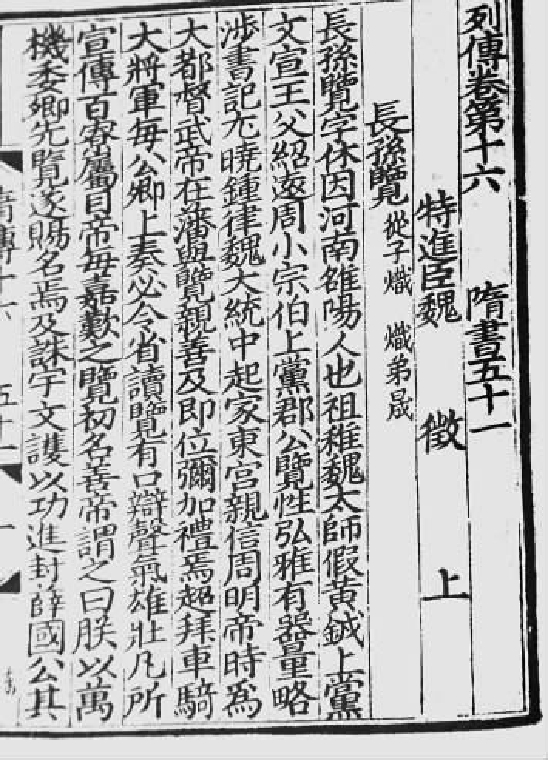 列傳卷第十六 隋書五十一
特進臣魏 徵 上
長孫覽 從子熾 熾弟晟
長孫覽字休因河南雒陽人也祖稚魏太師假黃鉞上黨
文宣王父紹遠周小宗伯上黨郡公覽性弘雅有器量略
涉書記尤曉鍾律魏大統中起家東宮親信周明帝時爲
大都督武帝在藩與覽親善及即位彌加禮焉超拜車騎
大將軍每公卿上奏必令省讀覽有口辯聲氣雄壯凡所
宣傳百寮屬目帝每嘉歎之覽初名善帝謂之曰朕以萬
機委卿先覽遂賜名焉及誅宇文護以功進封薛國公其
隋傳十六 五十一 一